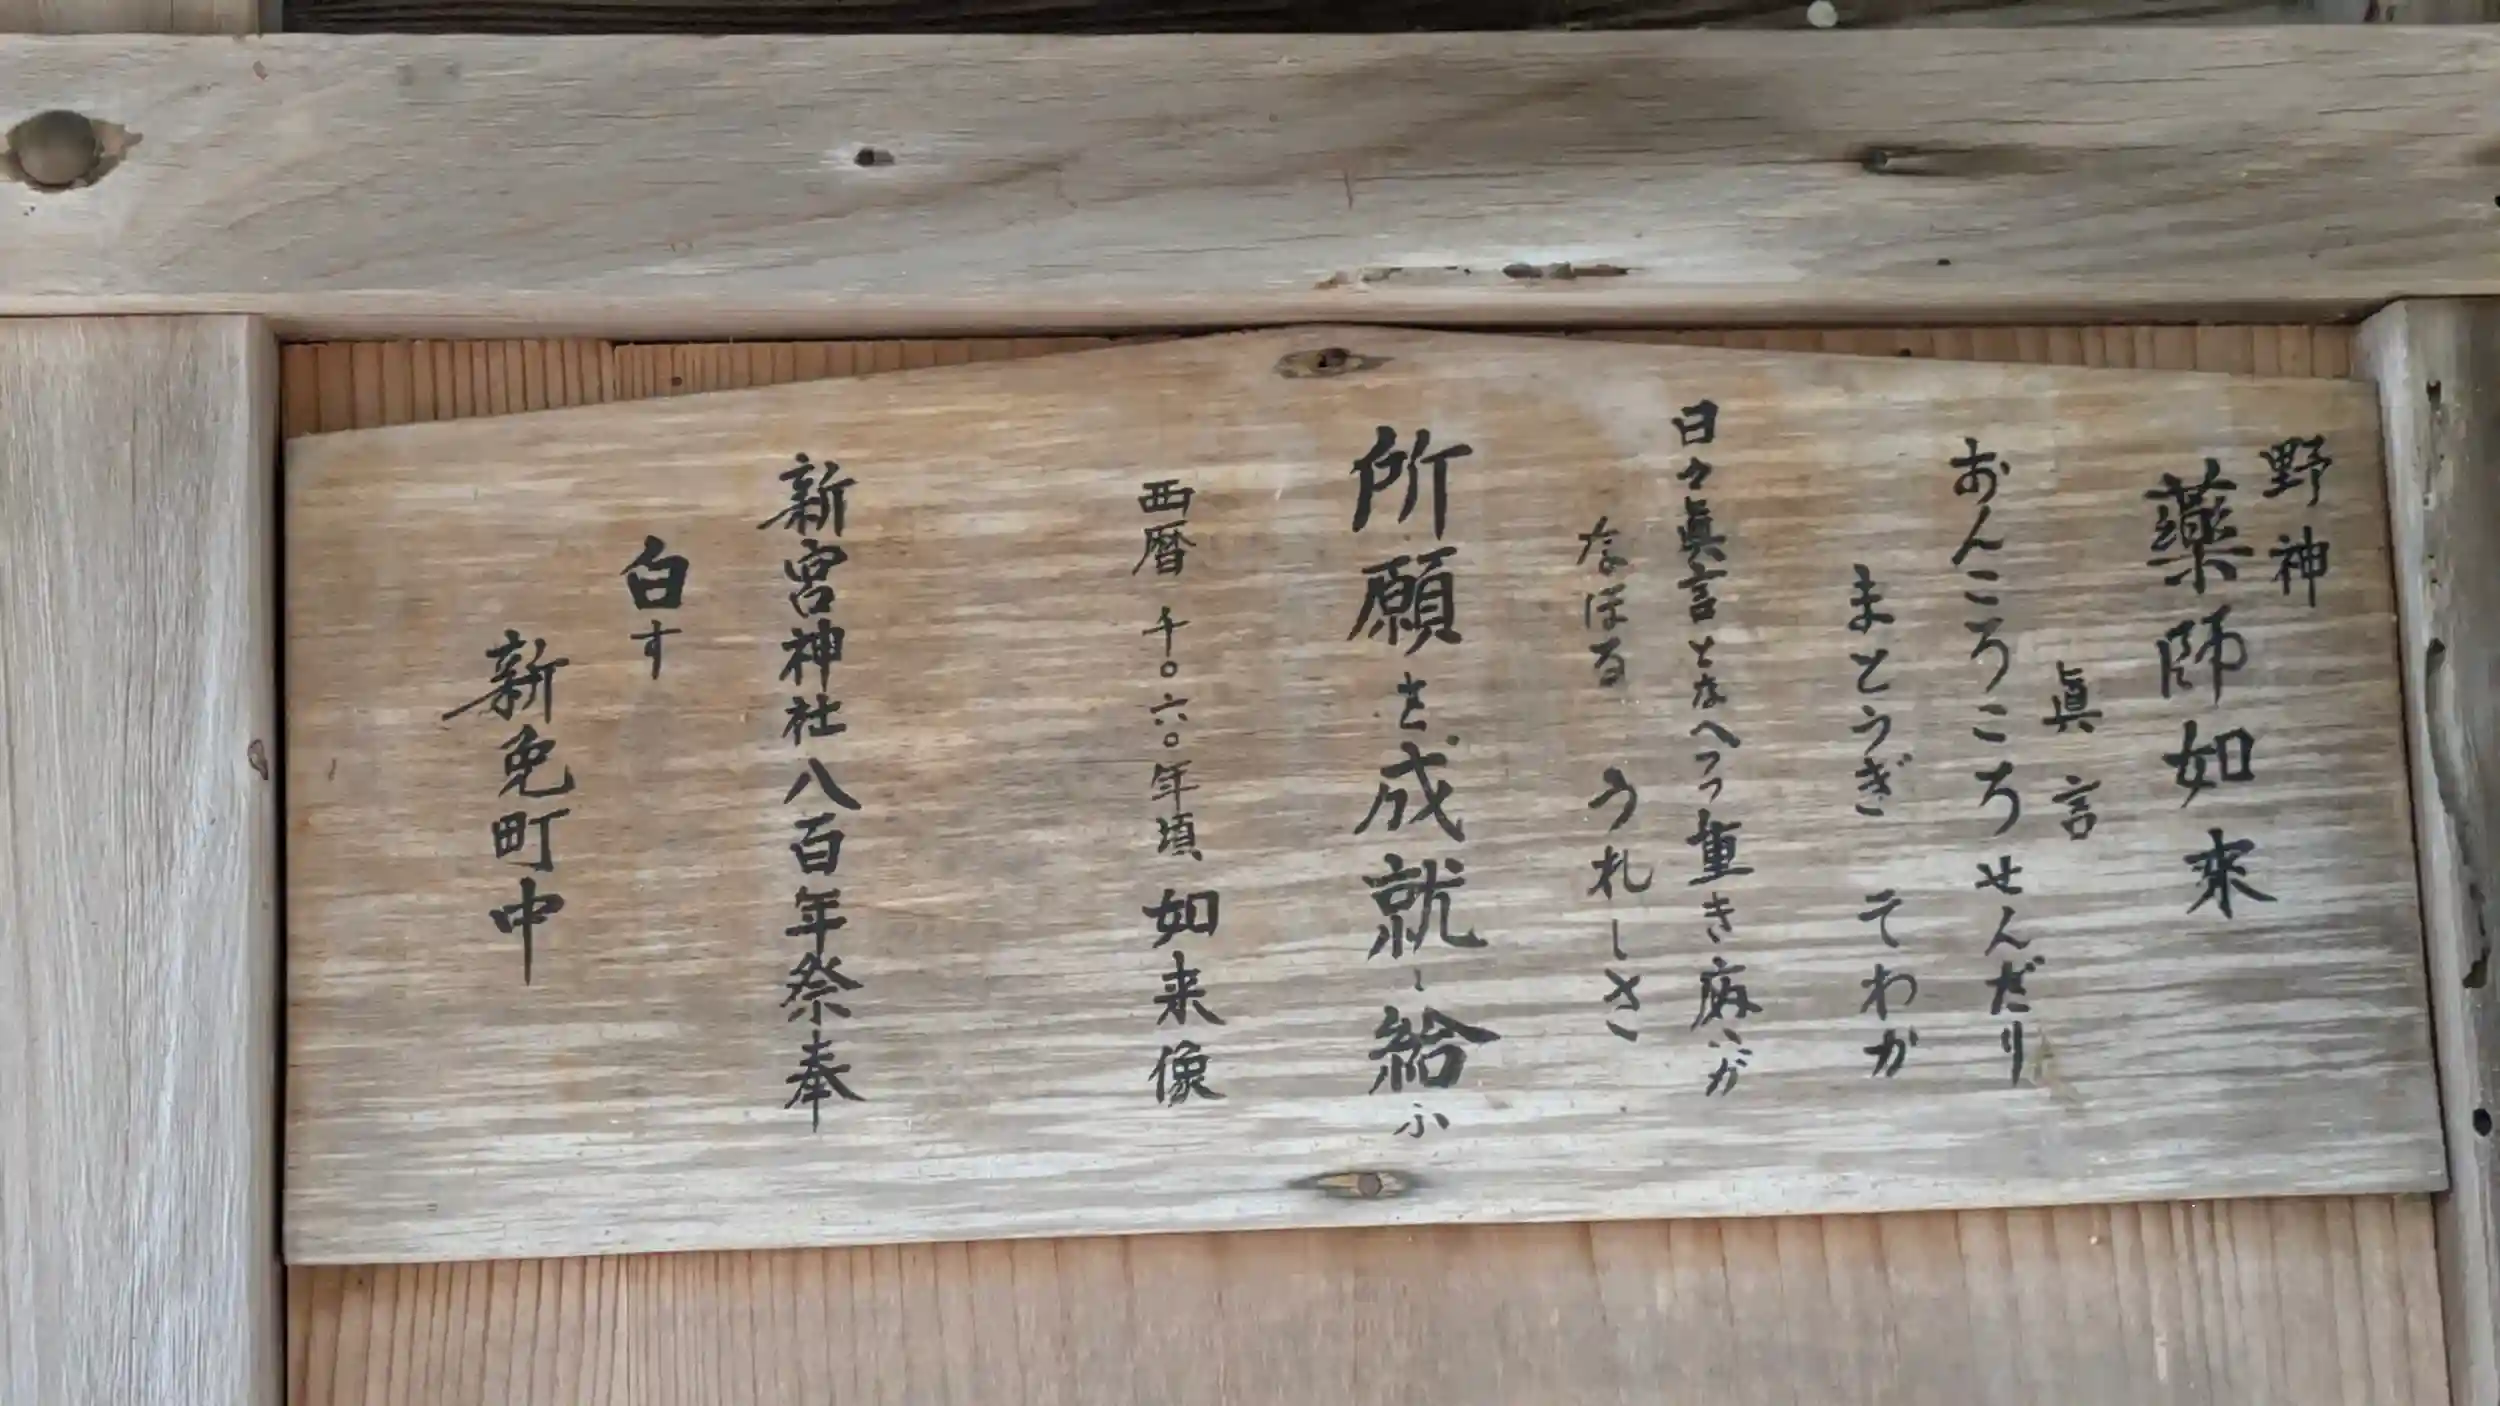 野神
藥師如来
眞言
おんころころせんだり
まとうぎ そわか
日々眞言となへつつ重き病いが
なほる うれしさ
所願を成就し給ふ
西暦 千〇六〇年頃 如来像
新宮神社八百年祭奉
白す
新免町中